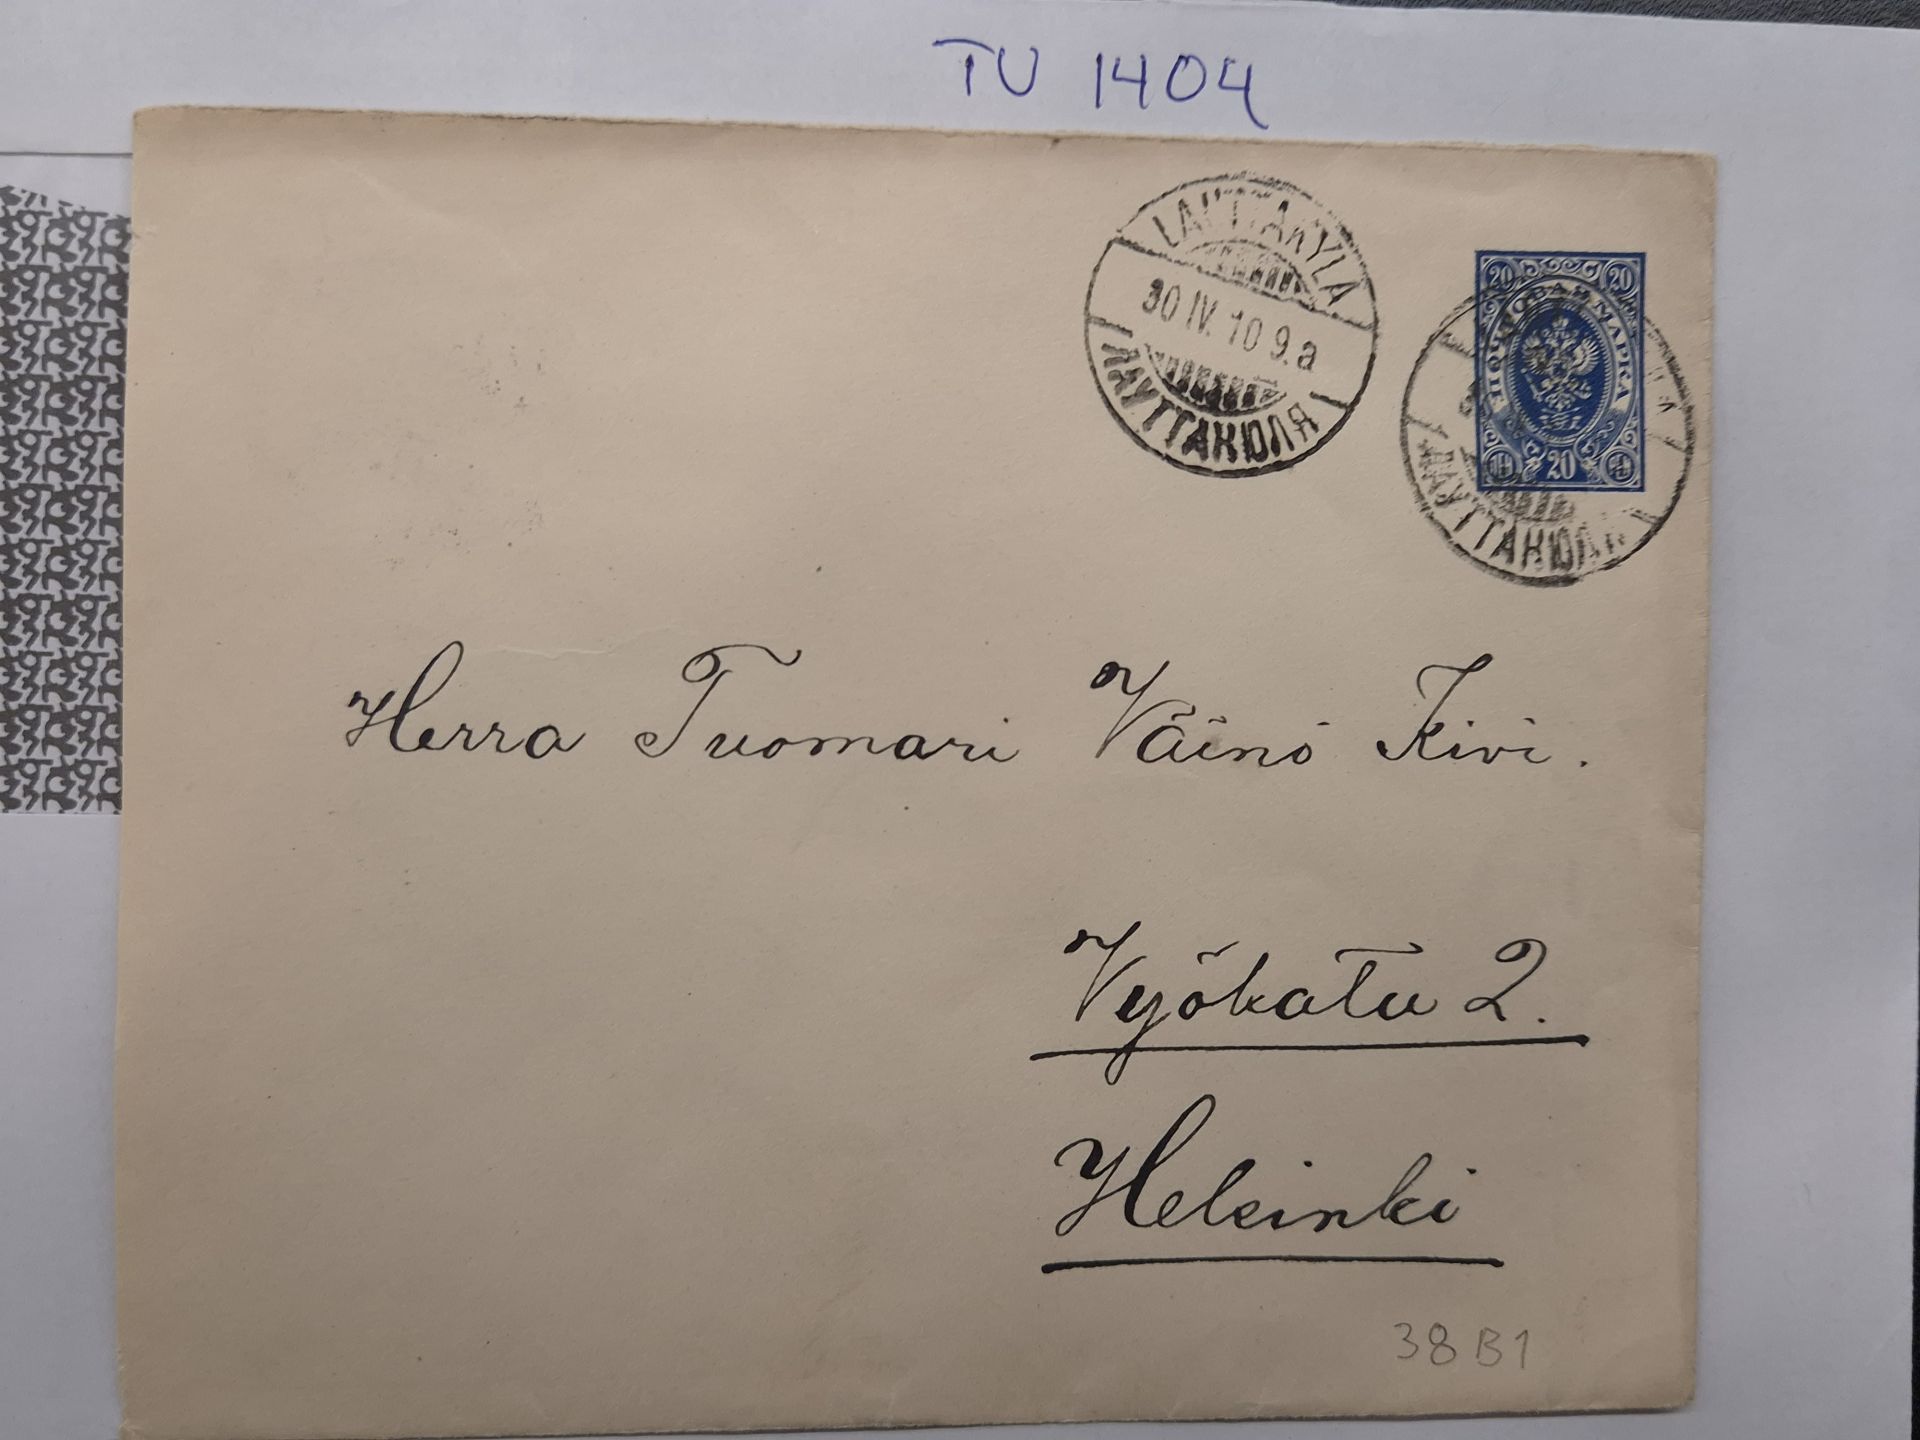 TU 1404
LAUTTAKYLÄ
30 IV. 10 9.a
ЛАУТТАКЮЛЯ
20 20
ПОЧТОВАЯ МАРКА
ПЕН 20 ПЕН
ЛАУТТАКЮЛЯ
Herra Tuomari Väinö Kivi.
Vyökatu 2.
Helsinki
38 B1